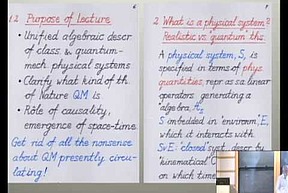 1.2 Purpose of Lecture
• Unified algebraic descr
of class. & quantum-
mech physical systems
• Clarify what kind of th
of Nature QM is.
• Rôle of causality,
emergence of space-time
Get rid of all the nonsense
about QM presently circu-
lating!
2. What is a physical system?
Realistic vs. quantum ths
A physical system, S, is
specified in terms of phys
quantities, repr as lin
operators generating a
*algebra,
S embedded in environm, E,
which it interacts with
SvE: closed syst. descr by
kinematical
on which time